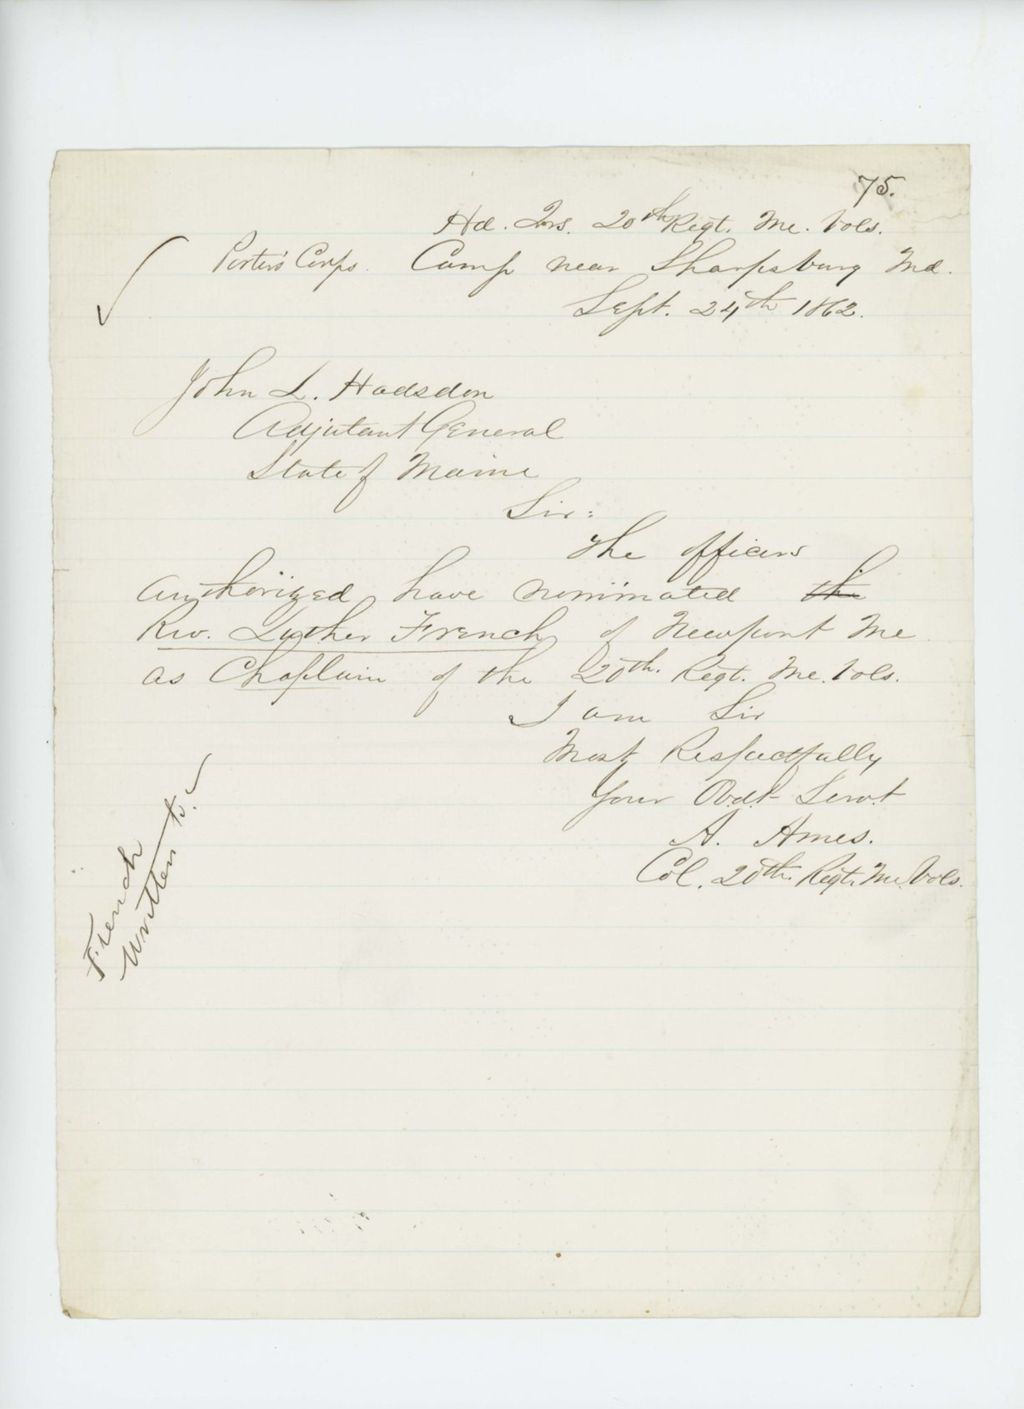 75.
Hd. Qrs. 20th Regt. Me. Vols.
Porter's Corps. Camp near Sharpsburg Md.
Sept. 24th 1862.
John L. Hodsdon
Adjutant General
State of Maine
Sir:
The officers
authorized have nominated the
Rev. Luther French of Newport Me
as Chaplain of the 20th. Regt. Me. Vols.
I am Sir
Most Respectfully
Your Obdt Servt
A. Ames.
Col. 20th. Regt. Me. Vols.
French
written to.